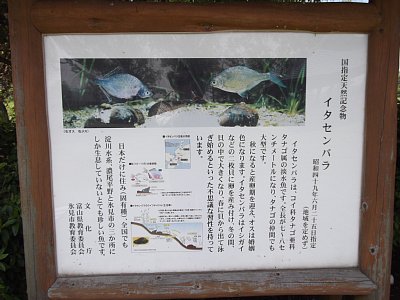 国指定天然記念物
イタセンパラ
（地域を定めず）
昭和四十九年六月二十五日指定
イタセンパラは、コイ科タナゴ亜科
タナゴ属の淡水魚です。全長が七～八セ
ンチメートルになり、タナゴの仲間でも
大型です。
秋になると産卵期を迎え、オスは婚姻
色になります。イタセンパラはイシガイ
などの二枚貝に卵を産み付け、冬の間、
貝の中で大きくなり、春に貝から出て泳
ぎ始めるといった不思議な習性を持って
います。
日本だけに住み（固有種）、全国でも
淀川水系、濃尾平野と氷見市の三か所に
しか生息していないとても珍しい魚です。
文化庁
富山県教育委員会
氷見市教育委員会